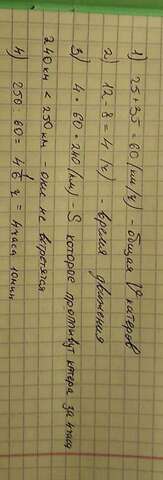 1) 25 + 35 = 60 (км/ч) - общая V катеров
2) 12 - 8 = 4 (ч) - время движения
3) 4 · 60 = 240 (км) - S которое проплывут катера за 4 часа
240 км < 250 км - они не встретятся
4) 250 : 60 = 4 1/6 ч = 4 часа 10 мин